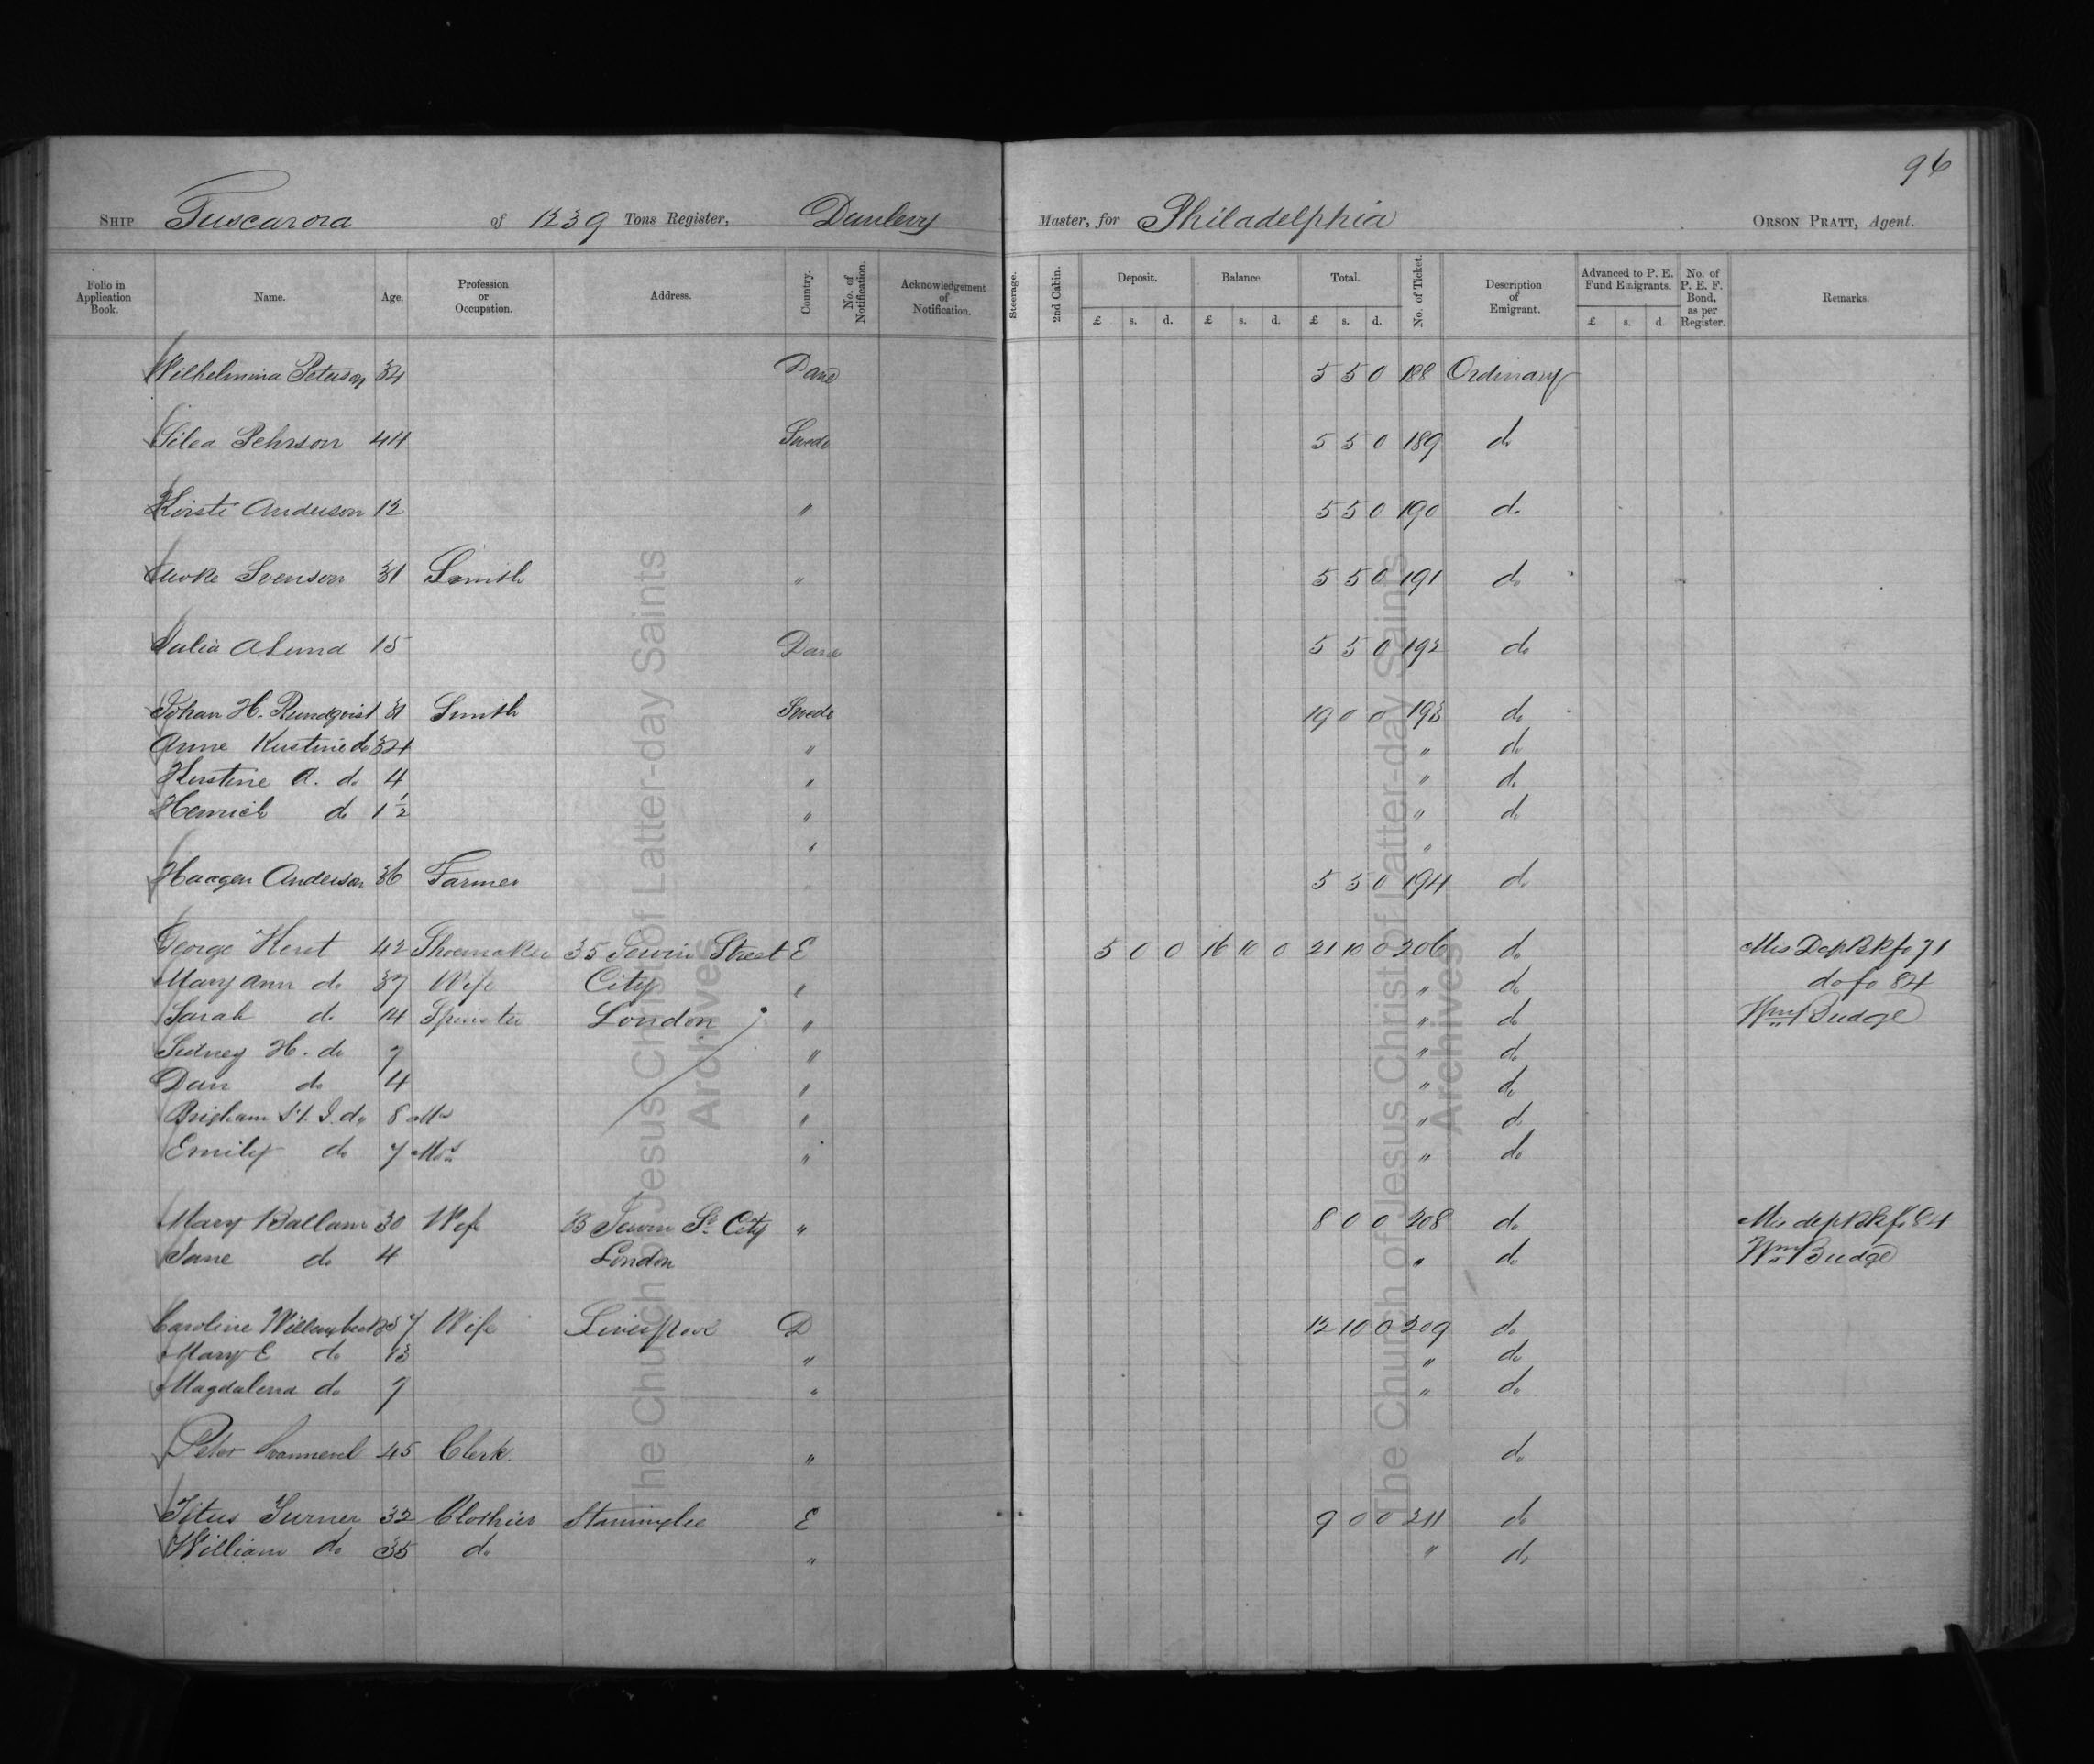 96
SHIP Tuscarora of 1239 Tons Register, Dunlevy Master, for Philadelphia ORSON PRATT, Agent.
Folio in Application Book. Name. Age. Profession or Occupation. Address. Country. No. of Notification. Acknowledgement of Notification. Steerage. 2nd Cabin. Deposit. Balance Total. No. of Ticket. Description of Emigrant. Advanced to P. E. Fund Emigrants. No. of P. E. F. Bond, as per Register. Remarks.
£ s. d. £ s. d. £ s. d. £ s. d.
Wilhelmina Peterson 34 Dane 5 5 0 188 Ordinary
Pehrson 44 Swede 5 5 0 189 do
Kirsti Anderson 12 " 5 5 0 190 do
Svenson 31 Smith " 5 5 0 191 do
Julia A Lund 15 Dane 5 5 0 192 do
Johan H. Rundqvist 31 Smith Swede 19 0 0 193 do
Anne Kirstine do 34 " " do
Kirstine A. do 4 " " do
Henrich do 1 1/2 " " do
" "
Haagen Anderson 36 Farmer 5 5 0 194 do
George Kent 42 Shoemaker 35 Jewin Street E 5 0 0 16 10 0 21 10 0 206 do Mis Dep Bk fo 71
Mary Ann do 37 Wife City " " do do fo 84
Sarah do 14 Spinster London " " do Wm Budge
Sidney H. do 9 " " do
Dan do 4 " " do
Brigham do 8 Ms " " do
Emily do 7 Mos " " do
Mary Ballam 30 Wife 35 Jewin St. City " 8 0 0 208 do Mis dep Bk fo 84
Jane do 4 London " do Wm Budge
Caroline 37 Wife Liverpool D 12 10 0 209 do
Mary E do 13 " " do
Magdalena do 9 " " do
Peter 45 Clerk. " do
Titus Turner 32 Clothier Stanninglee E 9 0 0 211 do
William do 35 do " " do
The Church of Jesus Christ of Latter-day Saints
Archives
The Church of Jesus Christ of Latter-day Saints
Archives